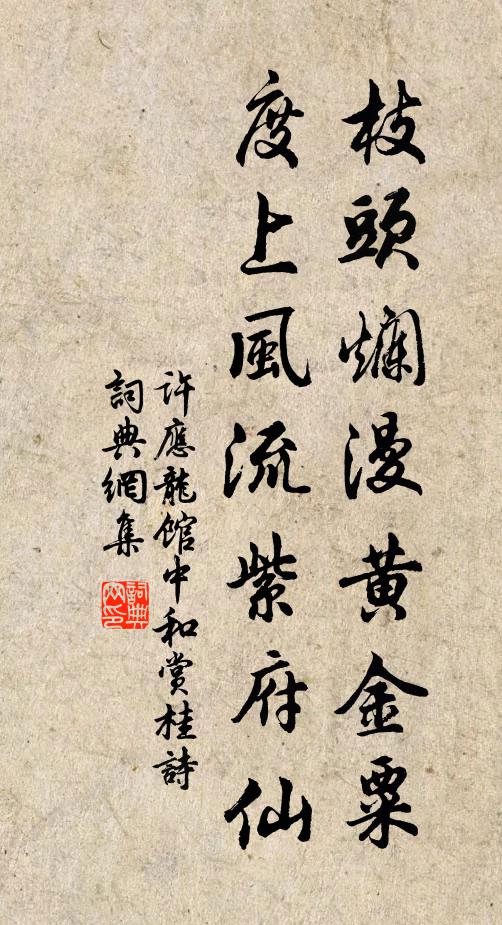 枝頭爛漫黄金粟
度上風流紫府仙
許應龍館中和賞桂詩
詞典網集
詞典网印